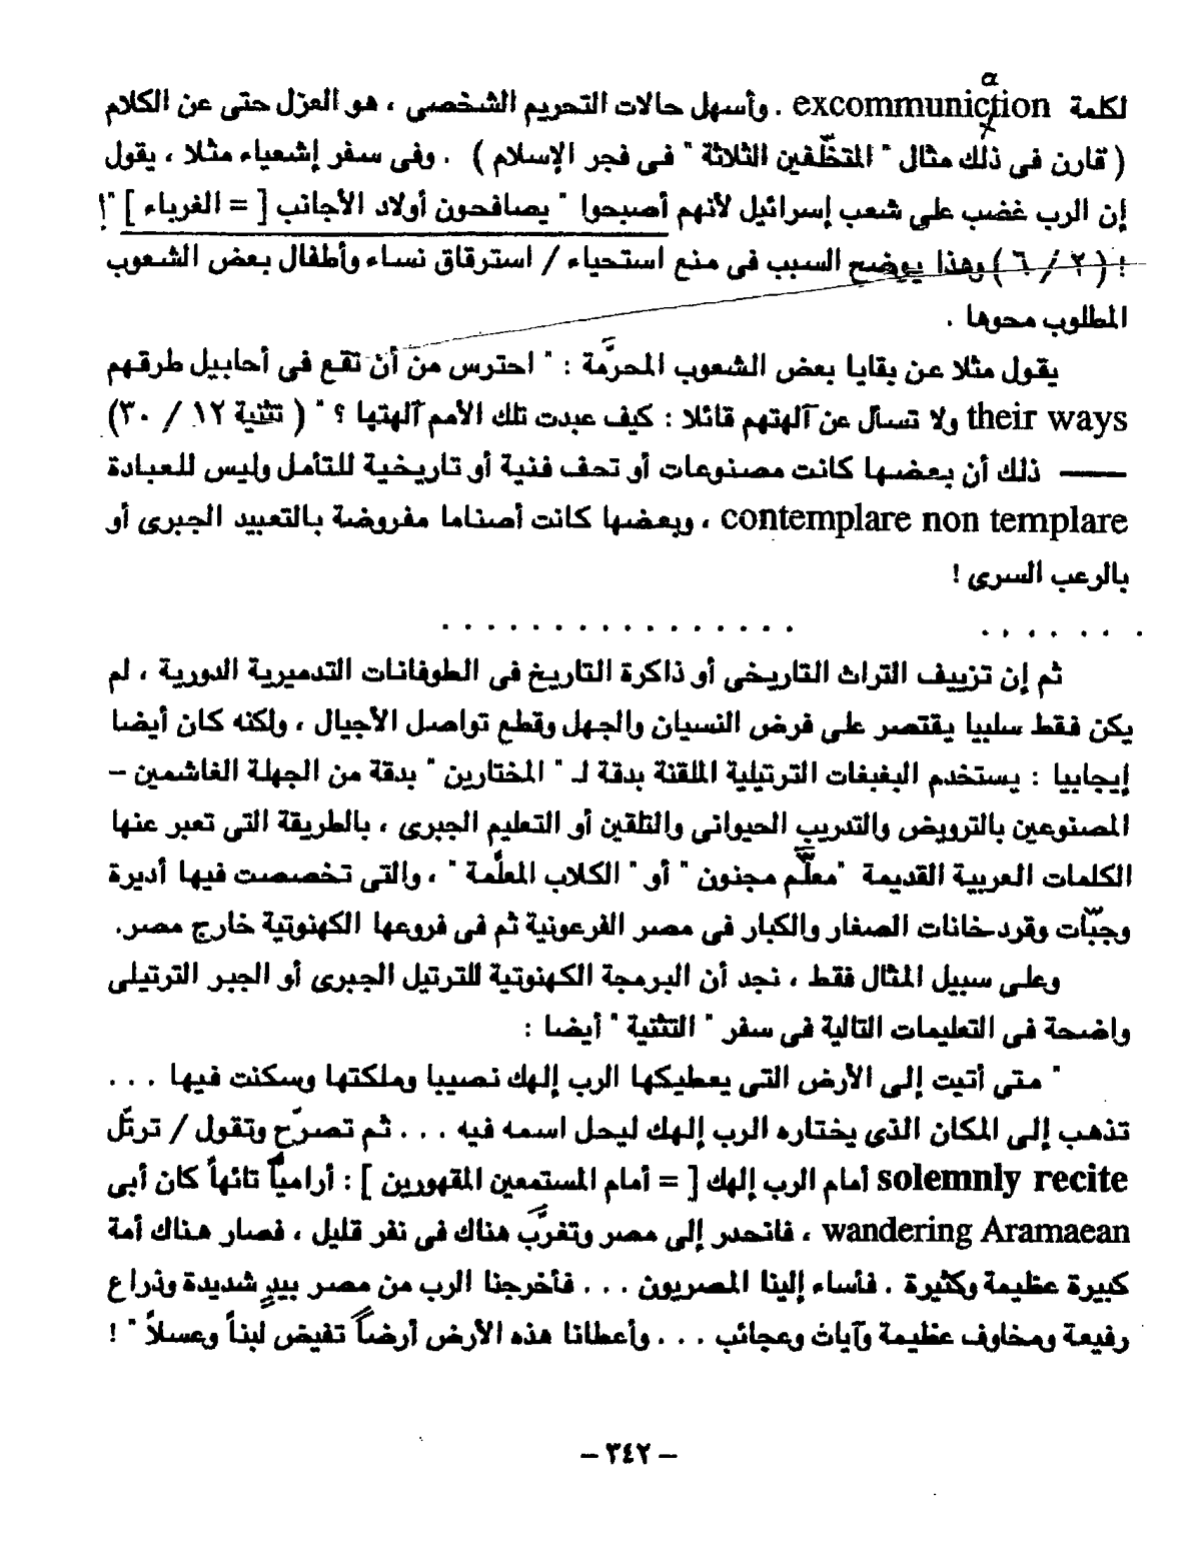 a
لكلمة excommuniction . وأسهل حالات التحريم الشخصى ، هو العزل حتى عن الكلام
( قارن فى ذلك مثال " المتخلّفين الثلاثة " فى فجر الإسلام ) . وفى سفر إشعياء مثلا ، يقول
إن الرب غضب على شعب إسرائيل لأنهم أصبحوا " يصافحون أولاد الأجانب [ = الغرباء ] "!
! ( ٢ / ٦ ) وهذا يوضح السبب فى منع استحياء / استرقاق نساء وأطفال بعض الشعوب
المطلوب محوها .
يقول مثلا عن بقايا بعض الشعوب المحرمّة : " احترس من أن تقع فى أحابيل طرقهم
their ways ولا تسأل عن آلهتهم قائلا : كيف عبدت تلك الأمم آلهتها ؟ " ( تثنية ١٢ / ٣٠)
—— ذلك أن بعضها كانت مصنوعات أو تحف فنية أو تاريخية للتأمل وليس للعبادة
contemplare non templare ، وبعضها كانت أصناما مفروضة بالتعبيد الجبرى أو
بالرعب السرى !
. . . . . . . . . . . . . . . . . . . .
ثم إن تزييف التراث التاريخى أو ذاكرة التاريخ فى الطوفانات التدميرية الدورية ، لم
يكن فقط سلبيا يقتصر على فرض النسيان والجهل وقطع تواصل الأجيال ، ولكنه كان أيضا
إيجابيا : يستخدم الببغبغات الترتيلية الملقنة بدقة لـ " المختارين " بدقة من الجهلة الغاشمين –
المصنوعين بالترويض والتدريب الحيوانى والتلقين أو التعليم الجبرى ، بالطريقة التى تعبر عنها
الكلمات العربية القديمة "معلّم مجنون " أو " الكلاب المعلّمة " ، والتى تخصصت فيها أديرة
وجبّات وقردخانات الصغار والكبار فى مصر الفرعونية ثم فى فروعها الكهنوتية خارج مصر.
وعلى سبيل المثال فقط ، نجد أن البرمجة الكهنوتية للترتل الجبرى أو الجبر الترتيلى
واضحة فى التعليمات التالية فى سفر " التثنية " أيضا :
" متى أتيت إلى الأرض التى يعطيكها الرب إلهك نصيبا وملكتها وسكنت فيها . . .
تذهب إلى المكان الذى يختاره الرب إلهك ليحل اسمه فيه . . . ثم تصرّح وتقول / ترتّل
solemnly recite أمام الرب إلهك [ = أمام المستمعين المقهورين ] : أرامياً تائهاً كان أبى
wandering Aramaean ، فانحدر إلى مصر وتغرَّب هناك فى نفر قليل ، فصار هناك أمة
كبيرة عظيمة وكثيرة . فأساء إلينا المصريون . . . فأخرجنا الرب من مصر بيدٍ شديدة وذراع
رفيعة ومخاوف عظيمة وآيات وعجائب . . . وأعطانا هذه الأرض أرضاً تفيض لبناً وعسلاً " !
– ٣٤٢ –